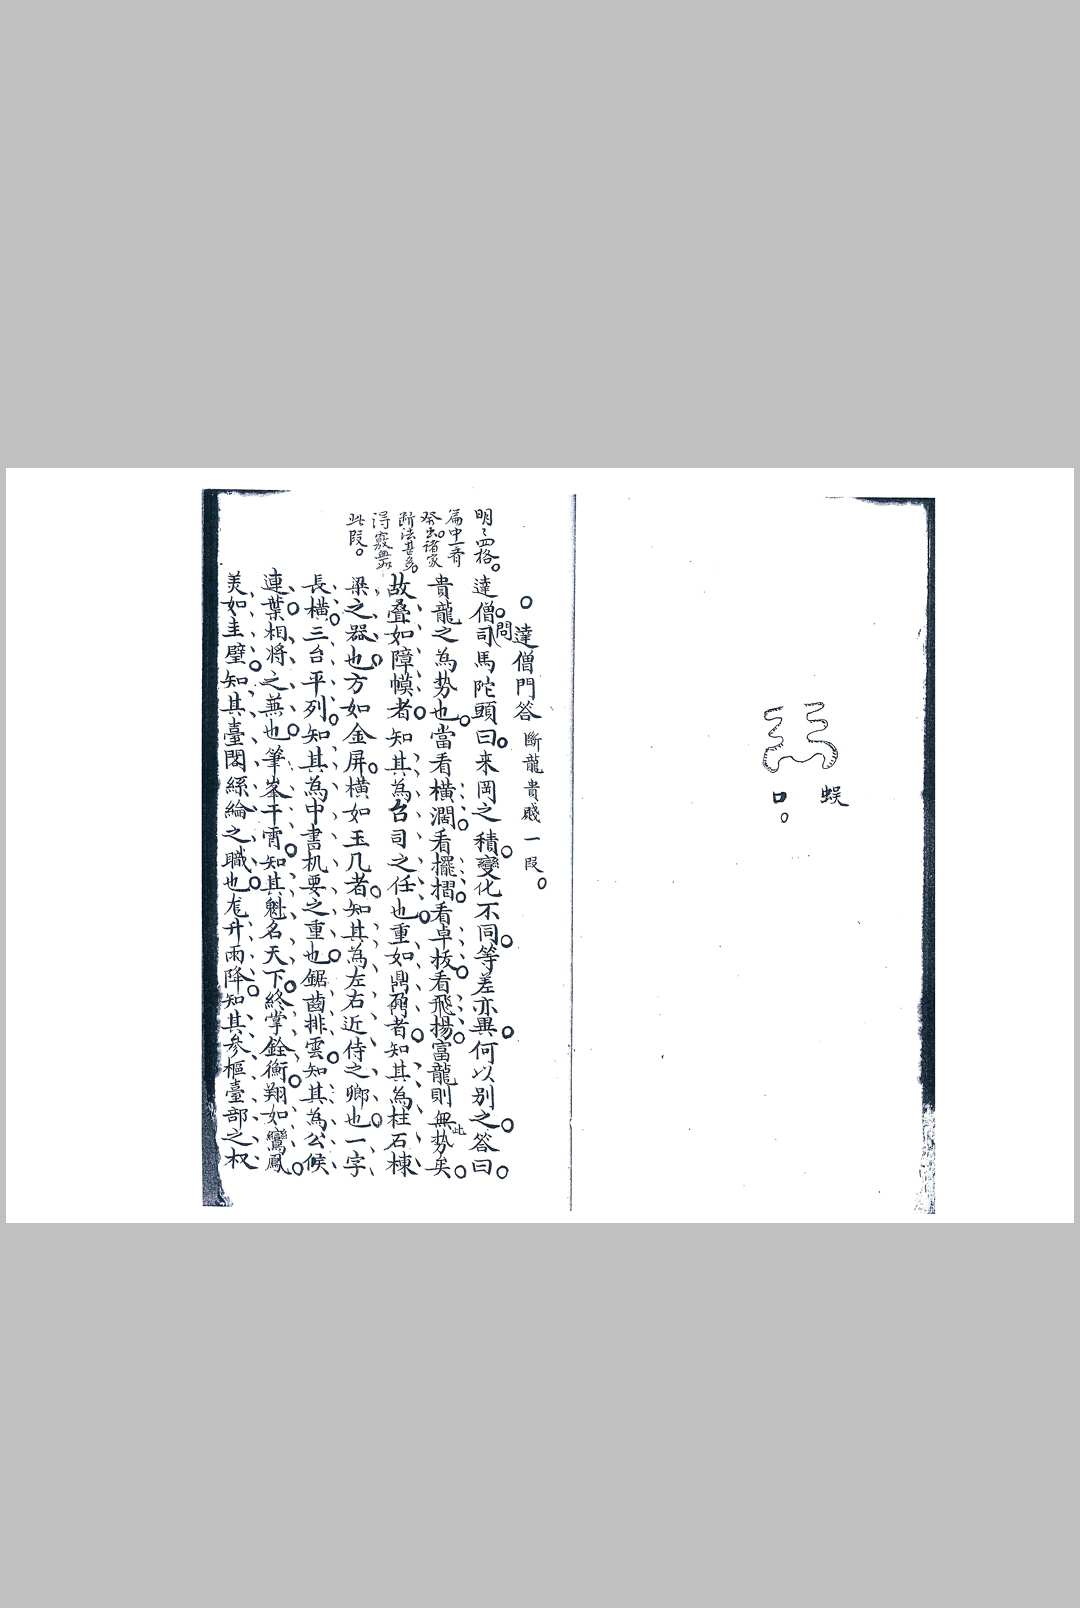 蜈
口。
。達僧問答 斷龍貴賤一段。
達僧問司馬陀頭曰来岡之積變化不同等差亦異何以别之答曰
貴龍之為势也當看橫濶看擺摺看卓拔看飛揚富龍則無此势矣
故叠如障幙者知其為台司之任也重如鼎鼐者知其為柱石棟
梁之器也方如金屏橫如玉几者知其為左右近侍之卿也一字
長橫三台平列知其為中書机要之重也鋸齒排雲知其為公候
連葉相将之蕪也筆峯干霄知其魁名天下終掌銓衡翔如鸞鳳
美如圭璧知其臺閣絲綸之職也龙升雨降知其參樞臺部之权
明〻四格。
篇中一斉
發出。諸家
断法甚多。
得竅無如
此段。